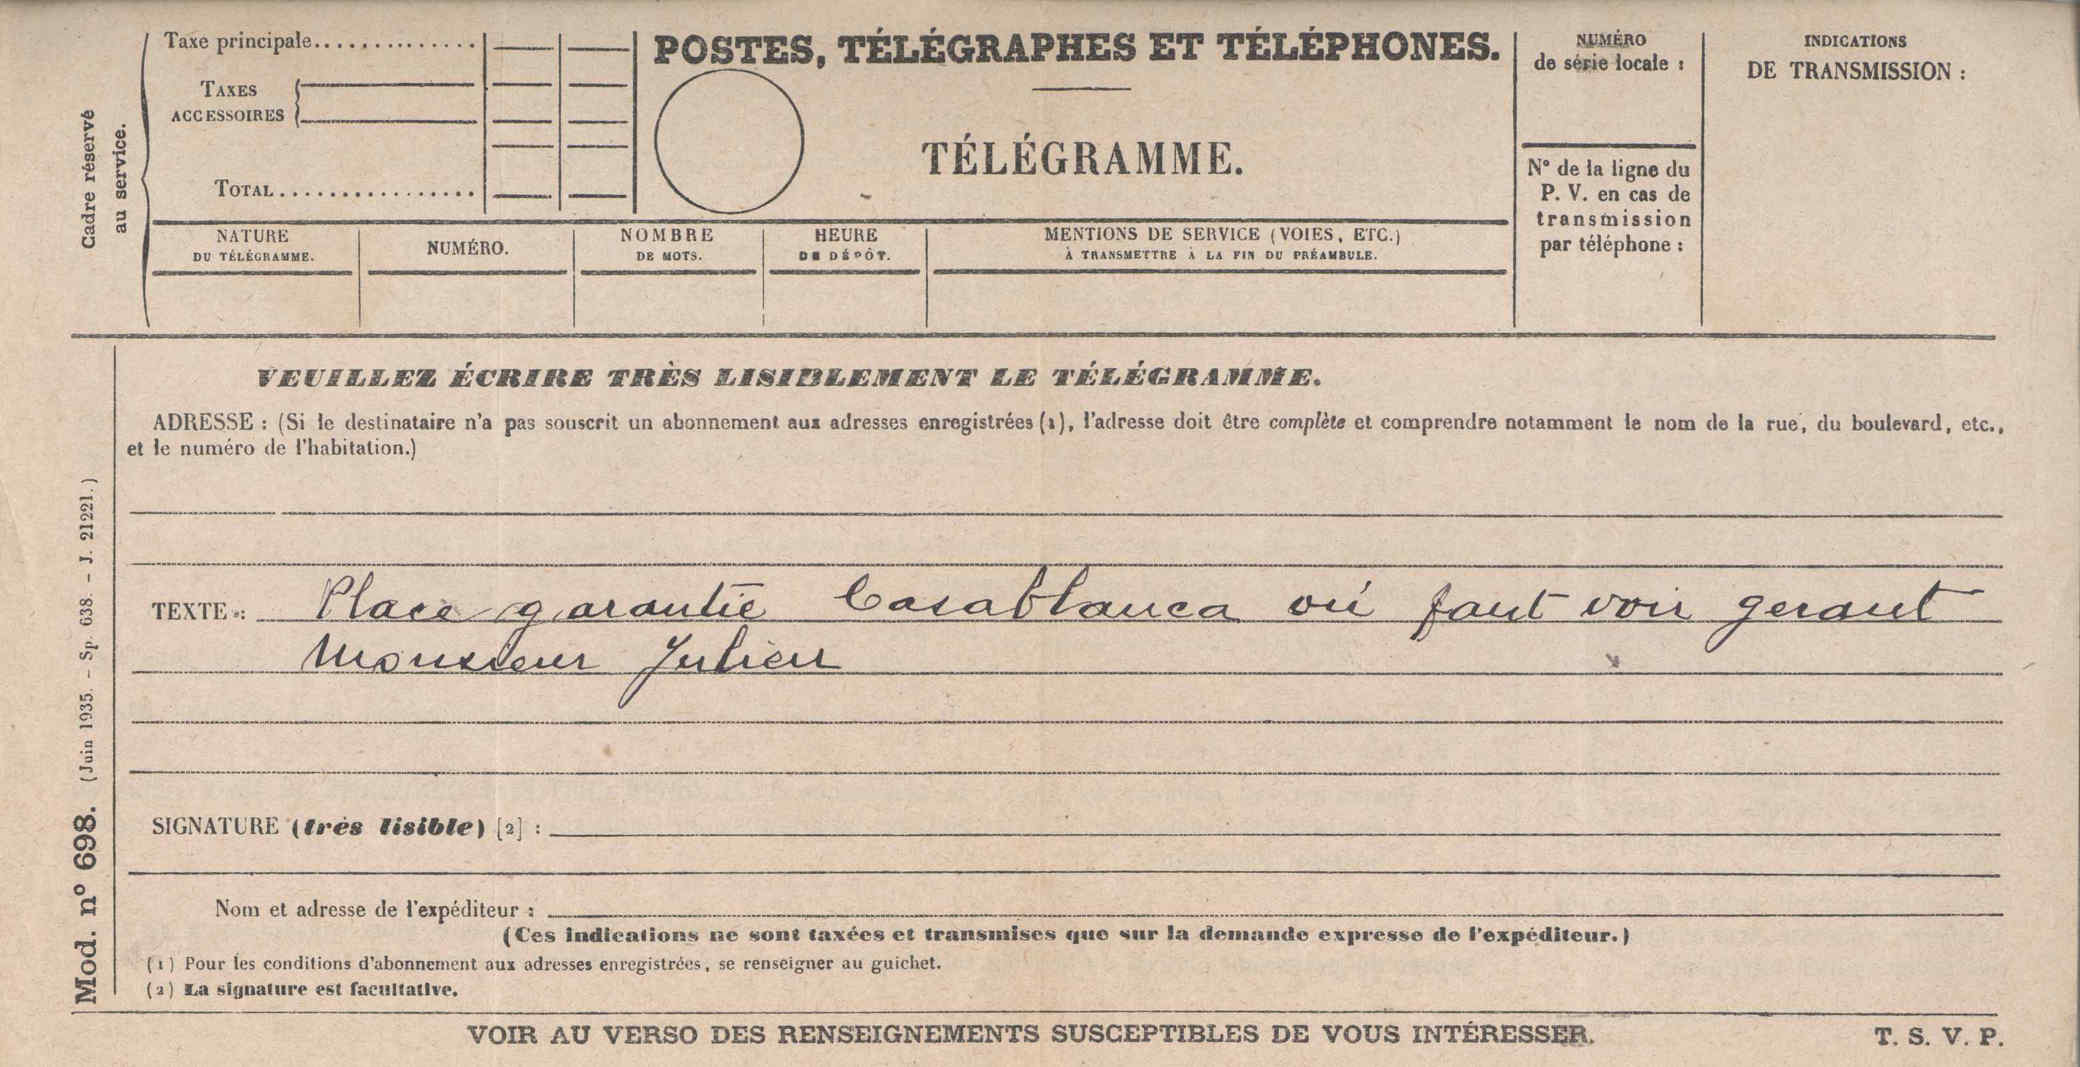 Cadre réservé
au service.
Taxe principale
TAXES
ACCESSOIRES
TOTAL
POSTES, TÉLÉGRAPHES ET TÉLÉPHONES.
TÉLÉGRAMME.
NUMÉRO
de série locale :
N° de la ligne du
P. V. en cas de
transmission
par téléphone :
INDICATIONS
DE TRANSMISSION :
NATURE
DU TÉLÉGRAMME.
NUMÉRO.
NOMBRE
DE MOTS.
HEURE
DE DÉPÔT.
MENTIONS DE SERVICE (VOIES, ETC.)
À TRANSMETTRE À LA FIN DU PRÉAMBULE.
VEUILLEZ ÉCRIRE TRÈS LISIBLEMENT LE TÉLÉGRAMME.
ADRESSE : (Si le destinataire n'a pas souscrit un abonnement aux adresses enregistrées (1), l'adresse doit être complète et comprendre notamment le nom de la rue, du boulevard, etc.,
et le numéro de l'habitation.)
TEXTE : Place garantie Casablanca où faut voir gerant
Monsieur Julien
SIGNATURE (très lisible) [2] :
Nom et adresse de l'expéditeur :
(Ces indications ne sont taxées et transmises que sur la demande expresse de l'expéditeur.)
(1) Pour les conditions d'abonnement aux adresses enregistrées, se renseigner au guichet.
(2) La signature est facultative.
Mod. n° 698. (Juin 1935. - Sp. 638. - J. 21221.)
VOIR AU VERSO DES RENSEIGNEMENTS SUSCEPTIBLES DE VOUS INTÉRESSER.
T. S. V. P.